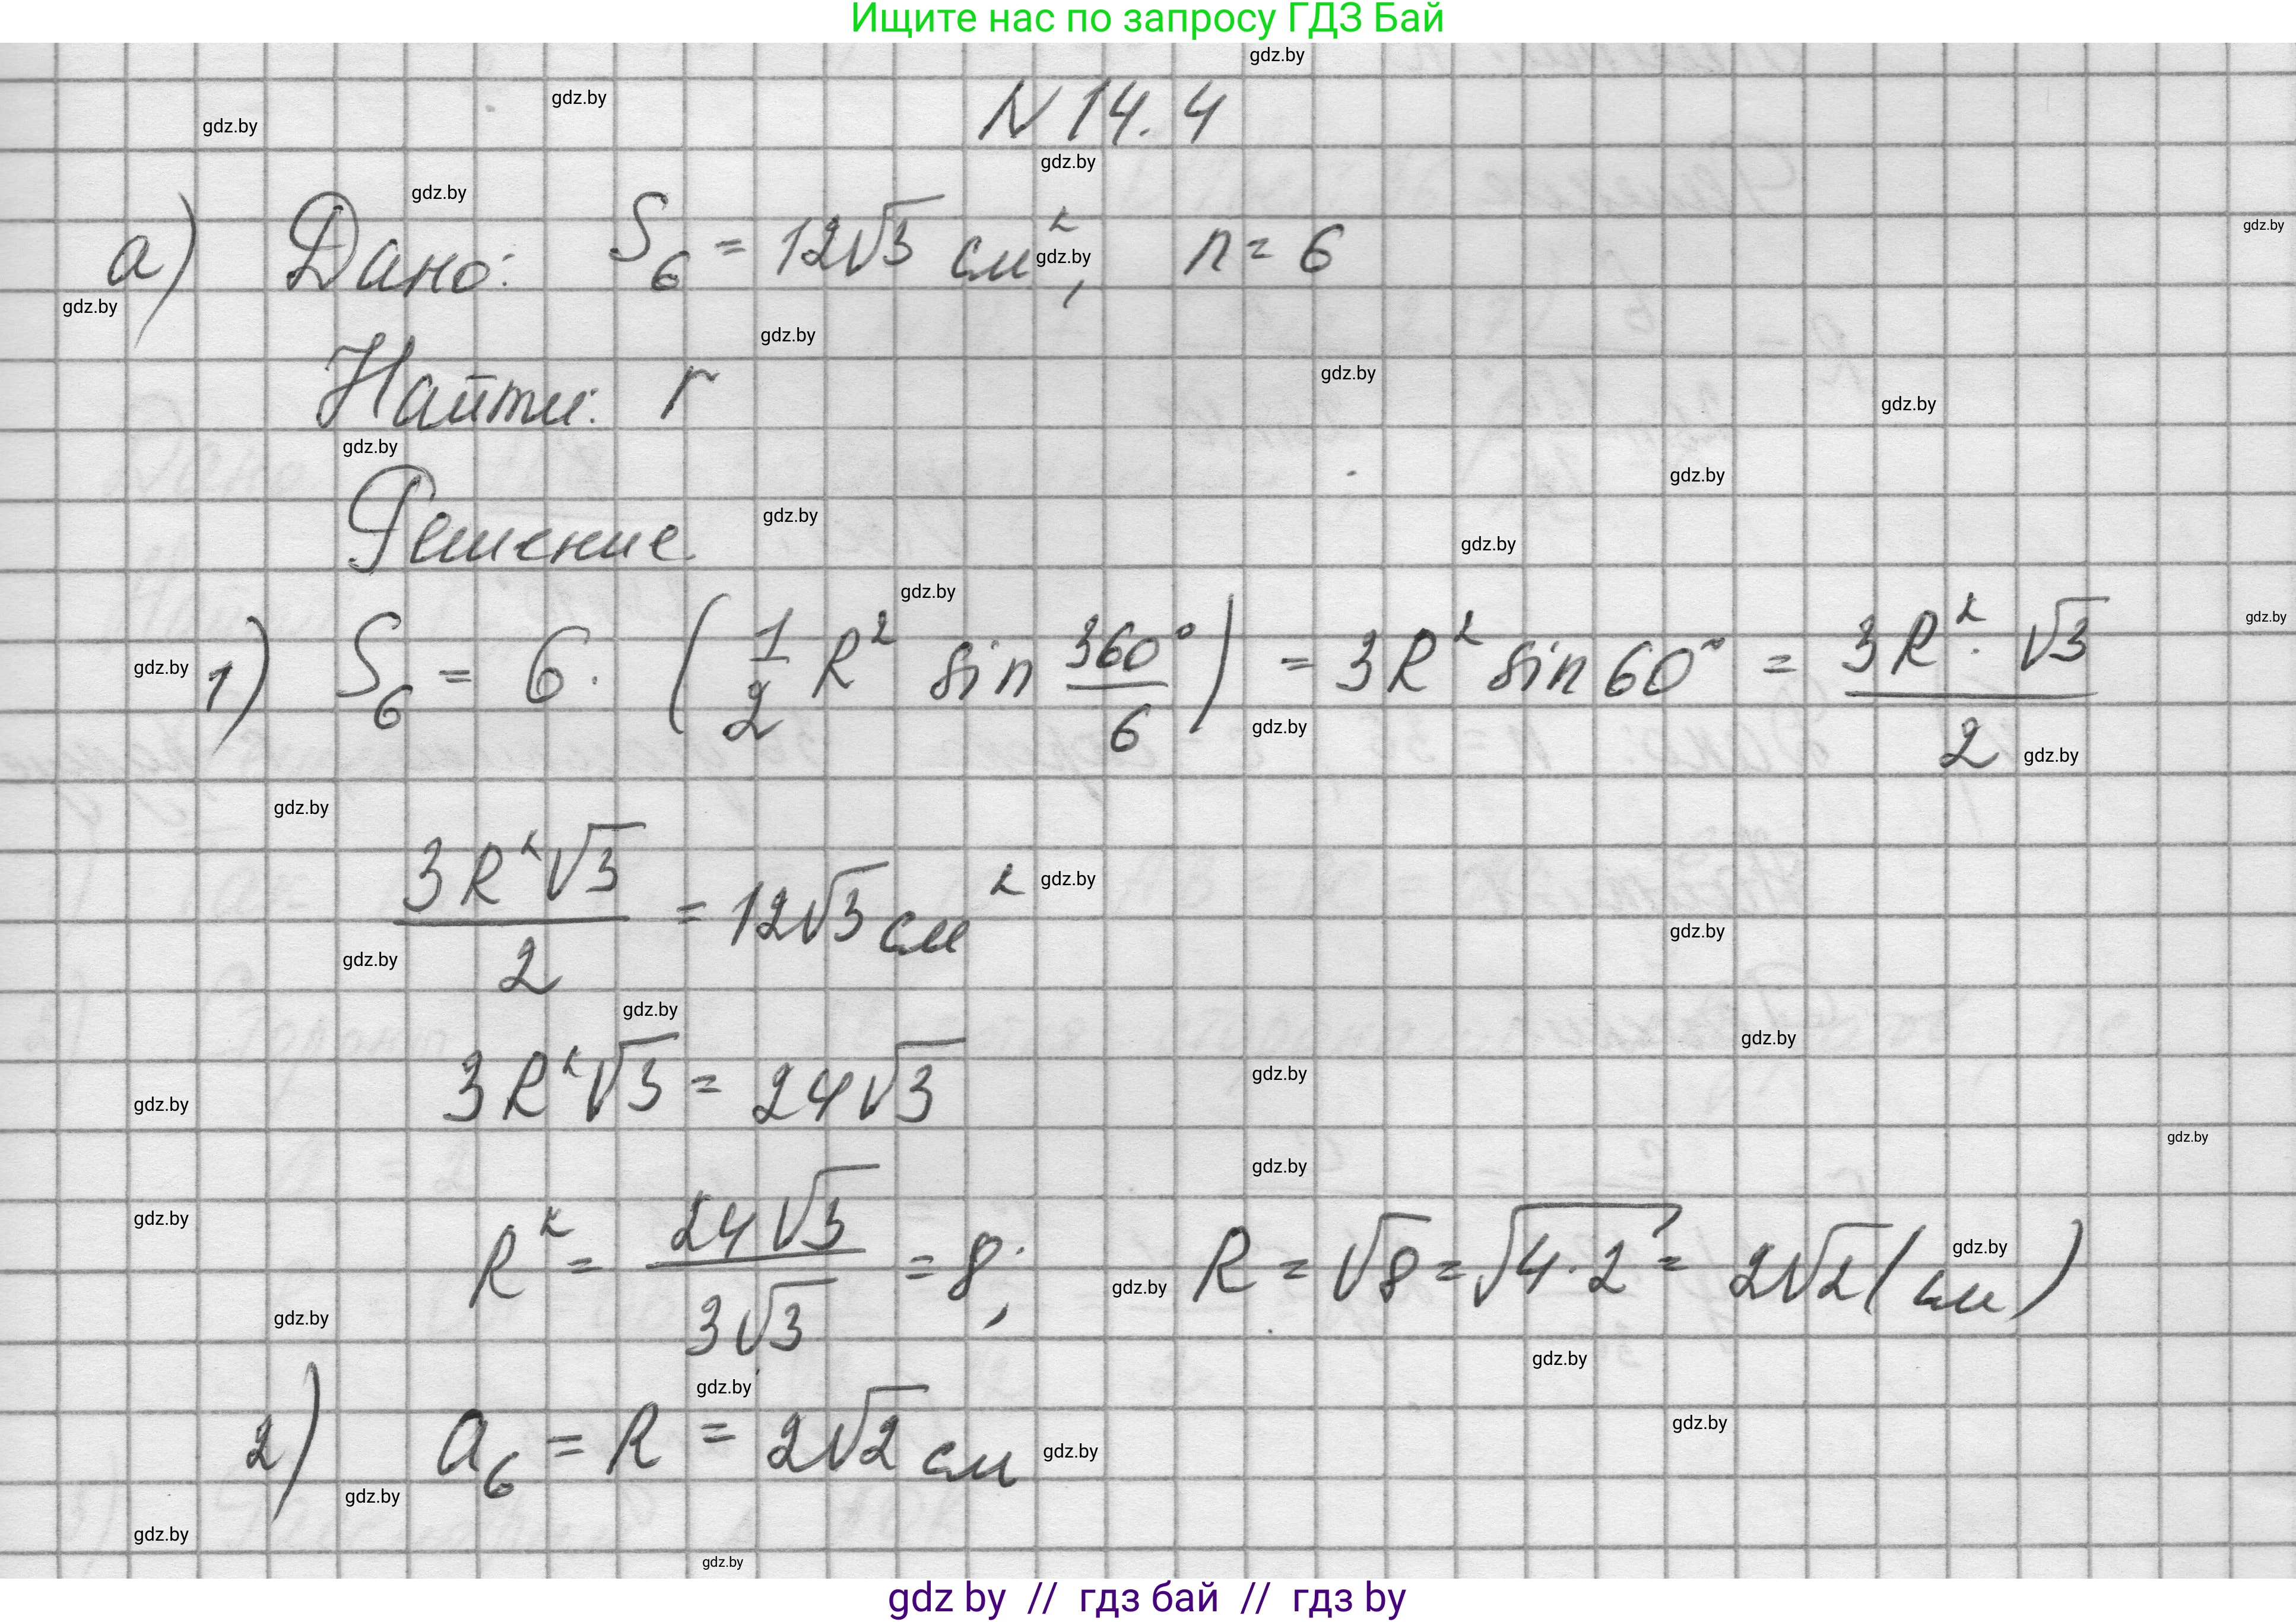 Ищите нас по запросу ГДЗ Бай
N 14.4
а) Дано: S₆ = 12√3 см², n = 6
Найти: r
Решение
1) S₆ = 6 · (1/2 R² sin 360°/6) = 3R² sin 60° = 3R² · √3 / 2
3R²√3 / 2 = 12√3 см²
3R²√3 = 24√3
R² = 24√3 / 3√3 = 8; R = √8 = √4·2 = 2√2 (см)
2) a₆ = R = 2√2 см
gdz.by
gdz by // гдз бай // гдз by